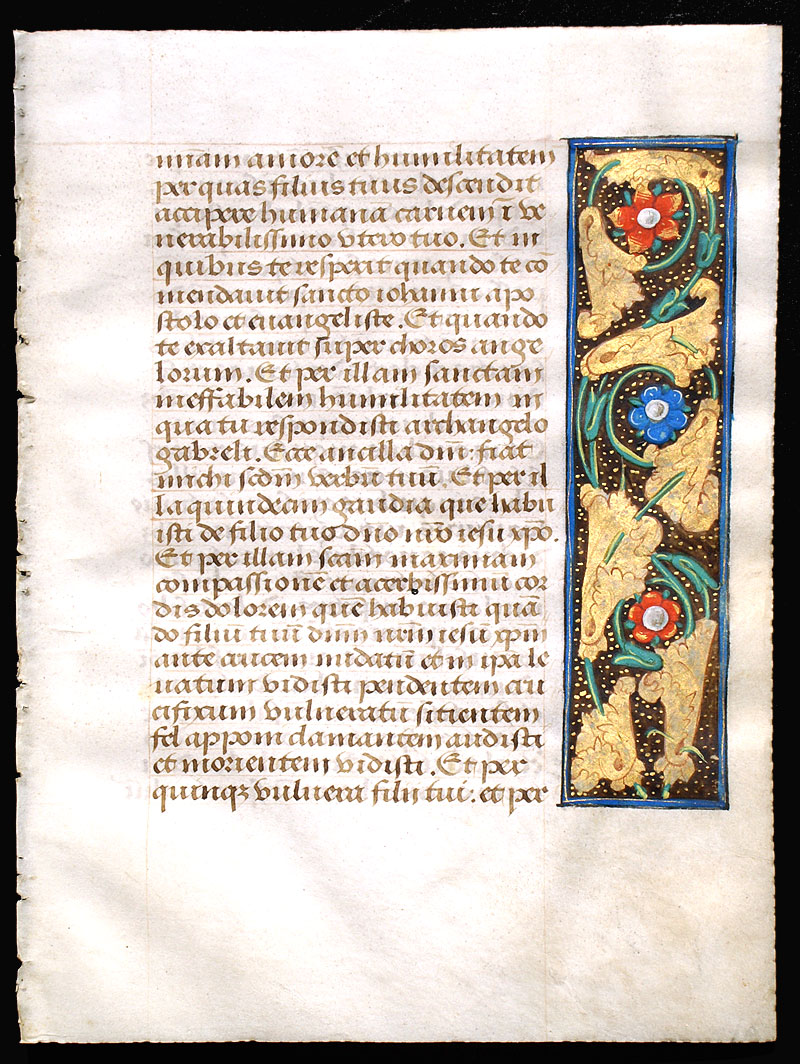 nnam amorē et humilitatem
per quas filius tuus descendit
accipere humanā carnem ī ve
nerabilissimo vtero tuo. Et in
quibus te respexit quando te cō
mendauit sancto iohanni apo
stolo et euangeliste. Et quando
te exaltauit super choros ange
lorum. Et per illam sanctam
ineffabilem humilitatem in
qua tu respondisti archangelo
gabreli. Ecce ancilla dn̄i: fiat
michi scd̄m verbū tuū. Et per il
la quindecim gaudia que habu
isti de filio tuo dn̄o nr̄o iesu xp̄o.
Et per illam scām maximam
compassionē et acerbissimū cor
dis dolorem quē habuisti quā
do filiū tuū dn̄m nr̄m iesū xp̄m
ante crucem nudatū et in ipa le
uatum vidisti pendentem cru
cifixum vulneratū sitientem
fel apponi clamantem audisti
et morientem vidisti. Et per
quinqꝫ vulnera filii tui: et per